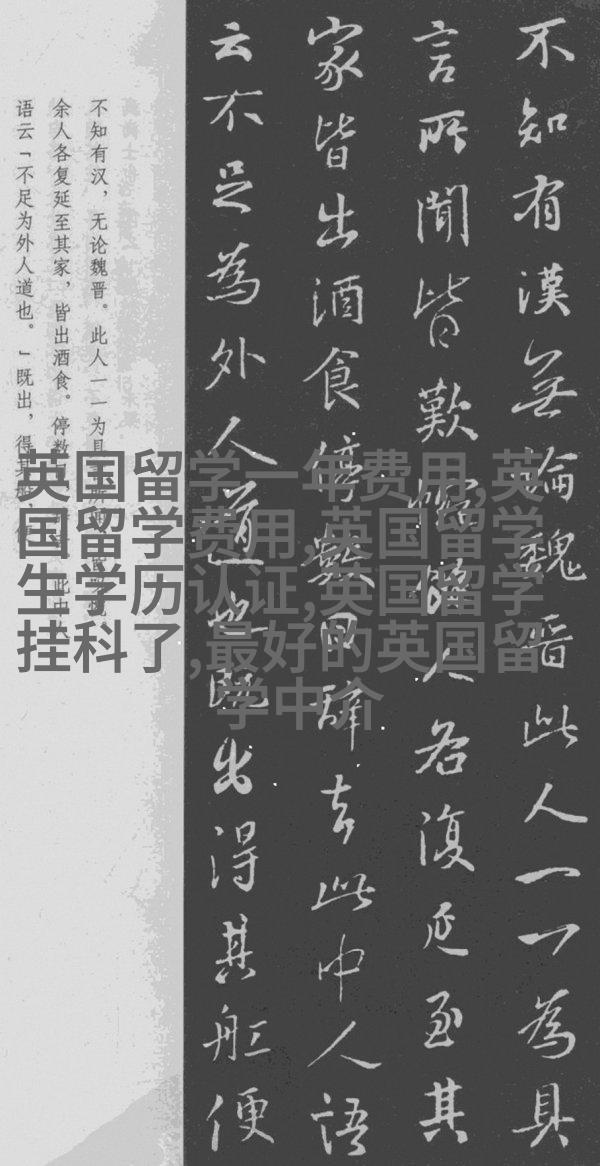 不知有漢無論魏晋此人一一為具
言所聞皆歎惋餘人各復延至其
家皆出酒食停數日辞去此中人語
云不足為外人道也既出得其舩便
不知有汉，无论魏晋。此人一一为具
余人各复延至其家，皆出酒食。停数 此中
语云「不足为外人道也。」既出，得其
英国留学一年费用,英
国留学费用,英国留学
生学历认证,英国留学
挂科了,最好的英国留
学中介